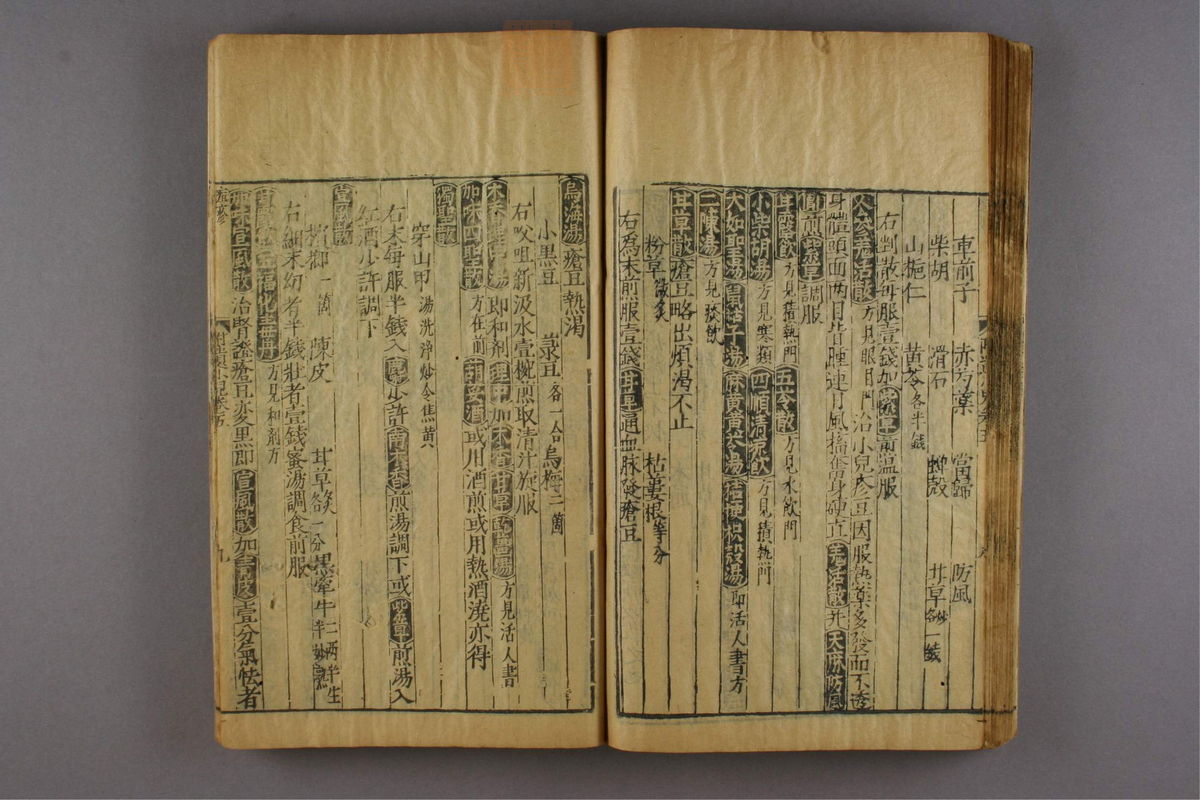 車前子 赤芍藥 當歸 防風
柴胡 滑石 蟬殼 甘草炒各一錢
山梔仁 黃芩各半錢
右剉散每服壹錢加紫草煎溫服
人參羌活散方見眼目門治小兒疹豆因服熱藥多發而不透
身體頭面兩目皆腫連月風搐奮身硬直羌活散先天麻防風
煎紫草調服
甘露飲方見積熱門 五苓散方見水飲門
小柴胡湯方見寒類 四順清凉飲方見積熱門
大如聖湯鼠粘子湯麻黃黃芩湯桔梗枳殼湯即活人書方
二陳湯方見痰飲
甘草散瘡豆略出煩渴不止
粉草微炙 栝蔞根等分
右爲末煎服壹錢甘草通血脉發瘡豆
烏海湯瘡豆熱渴
小黑豆 菉豆各一合 烏梅二箇
右㕮咀新汲水壹椀煎取清汁旋服
即和劑理中加木香甘草方見活人書
加味四聖散方在前胡荽酒或用酒煎或用熱酒澆亦得
獨聖散
穿山甲湯洗淨炒令焦黃
右末每服半錢入麝少許南木香煎湯調下或紫草煎湯入
紅酒少許調下
宣風散
檳榔一箇 陳皮 甘草炙各一分 黑牽牛二兩半生半炒熟
右細末幼者半錢壯者壹錢蜜湯調食前服
福化毒丹方見和劑方
加味宣風散治腎證瘡豆亦黑即宣風散加青皮壹分氣怯者